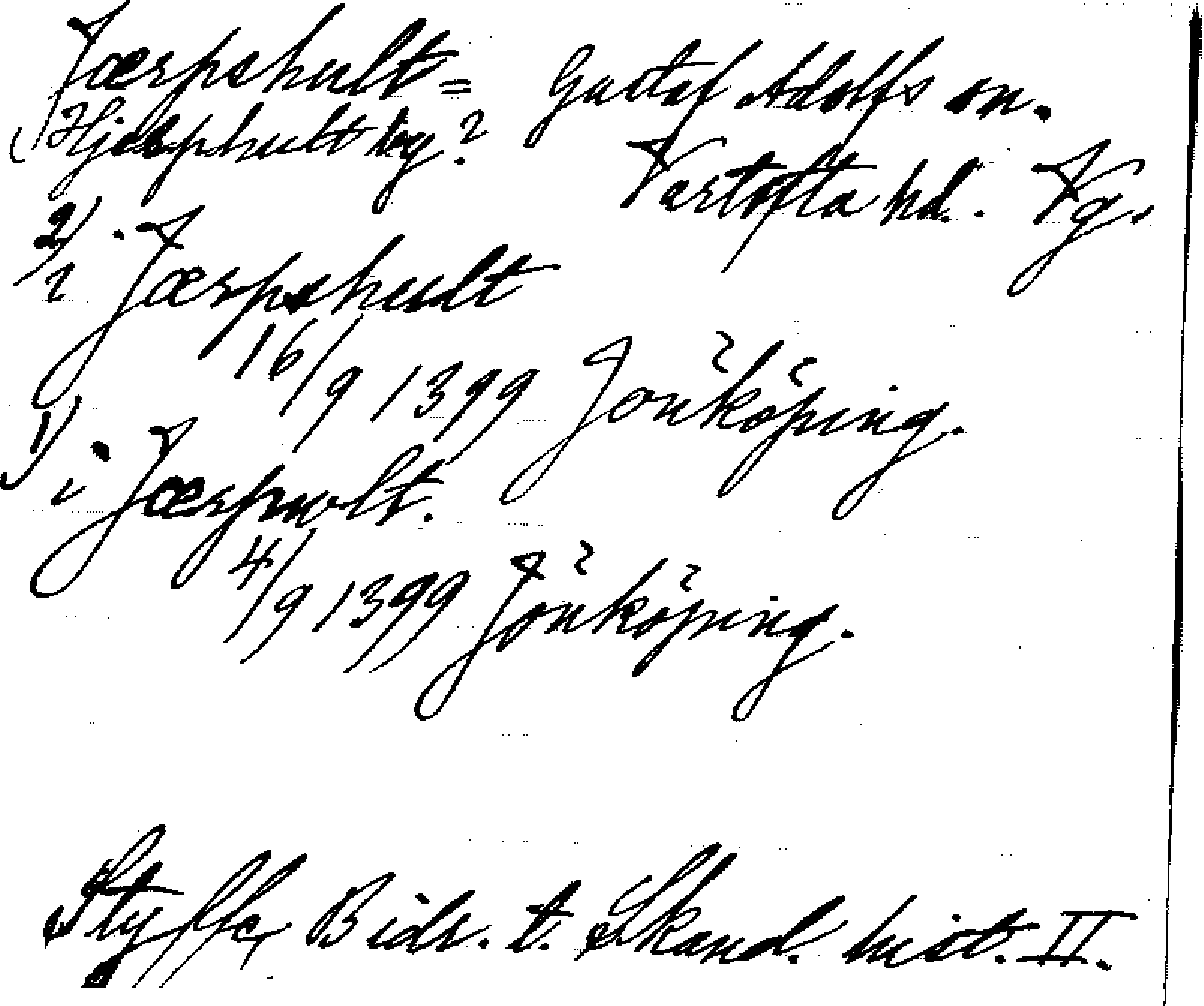 Jærpshult = Gustaf Adolfs sn.
Hjelphult by? Vartofta hd. Vg.
2) i Jærpshult
16/9 1399 Jönköping.
1) i Jærpwlt.
4/9 1399 Jönköping.
Styffe, Bidr. t. Skand. hist. II.